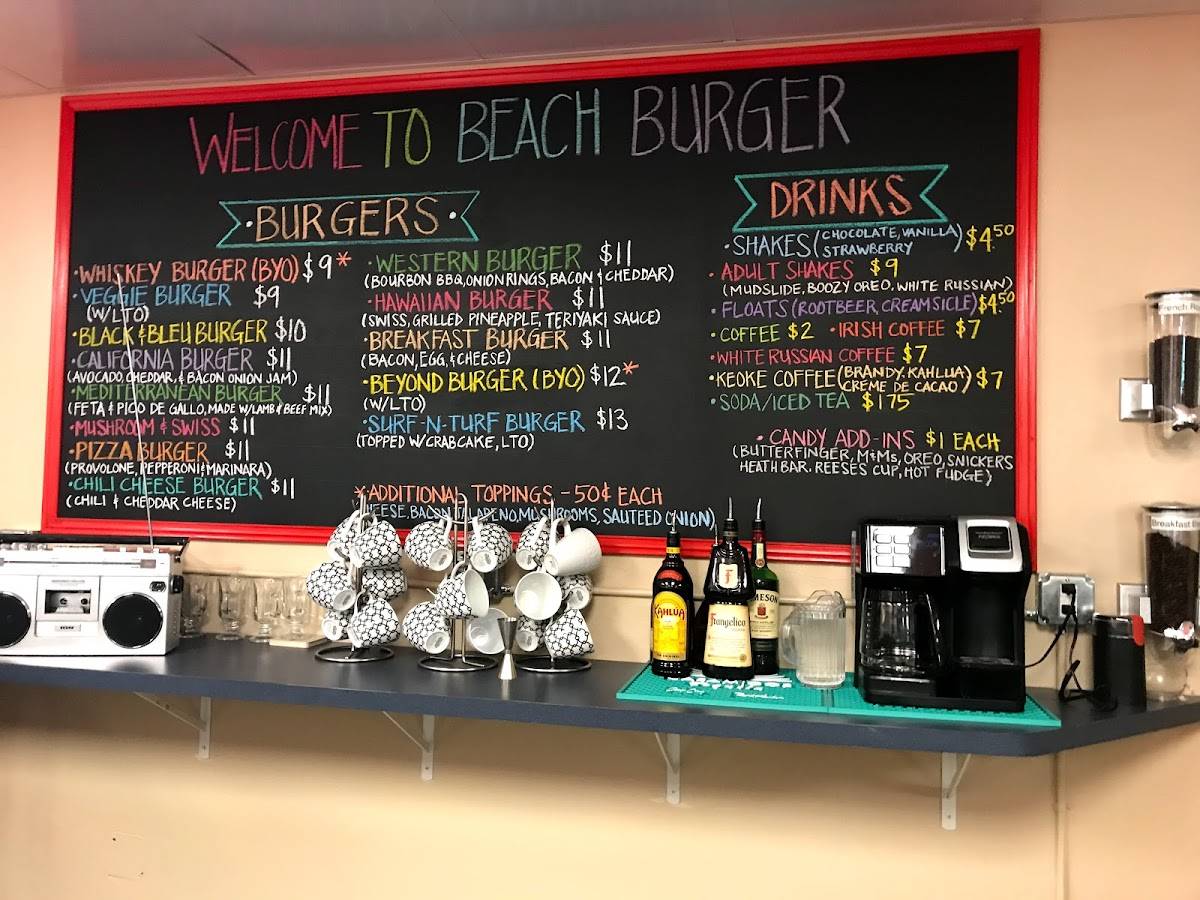 WELCOME TO BEACH BURGER
·BURGERS·
·WHISKEY BURGER (BYO) $9*
·VEGGIE BURGER $9
(W/LTO)
·BLACK & BLEU BURGER $10
·CALIFORNIA BURGER $11
(AVOCADO, CHEDDAR, & BACON ONION JAM)
·MEDITERRANEAN BURGER $11
(FETA & PICO DE GALLO, MADE W/LAMB & BEEF MIX)
·MUSHROOM & SWISS $11
·PIZZA BURGER $11
(PROVOLONE, PEPPERONI & MARINARA)
·CHILI CHEESE BURGER $11
(CHILI & CHEDDAR CHEESE)
·WESTERN BURGER $11
(BOURBON BBQ, ONION RINGS, BACON & CHEDDAR)
·HAWAIIAN BURGER $11
(SWISS, GRILLED PINEAPPLE, TERIYAKI SAUCE)
·BREAKFAST BURGER $11
(BACON, EGG, & CHEESE)
·BEYOND BURGER (BYO) $12*
(W/LTO)
·SURF-N-TURF BURGER $13
(TOPPED W/CRABCAKE, LTO)
*ADDITIONAL TOPPINGS - 50¢ EACH
CHEESE, BACON, JALAPENO, MUSHROOMS, SAUTEED ONION)
DRINKS
·SHAKES (CHOCOLATE, VANILLA, STRAWBERRY) $4.50
·ADULT SHAKES $9
(MUDSLIDE, BOOZY OREO, WHITE RUSSIAN)
·FLOATS (ROOTBEER, CREAMSICLE) $4.50
·COFFEE $2 ·IRISH COFFEE $7
·WHITE RUSSIAN COFFEE $7
·KEOKE COFFEE (BRANDY, KAHLUA, CREME DE CACAO) $7
·SODA/ICED TEA $1.75
·CANDY ADD-INS $1 EACH
(BUTTERFINGER, M&Ms, OREO, SNICKERS
HEATH BAR, REESES CUP, HOT FUDGE)
KAHLUA
Frangelico
JAMESON
French
Breakfast